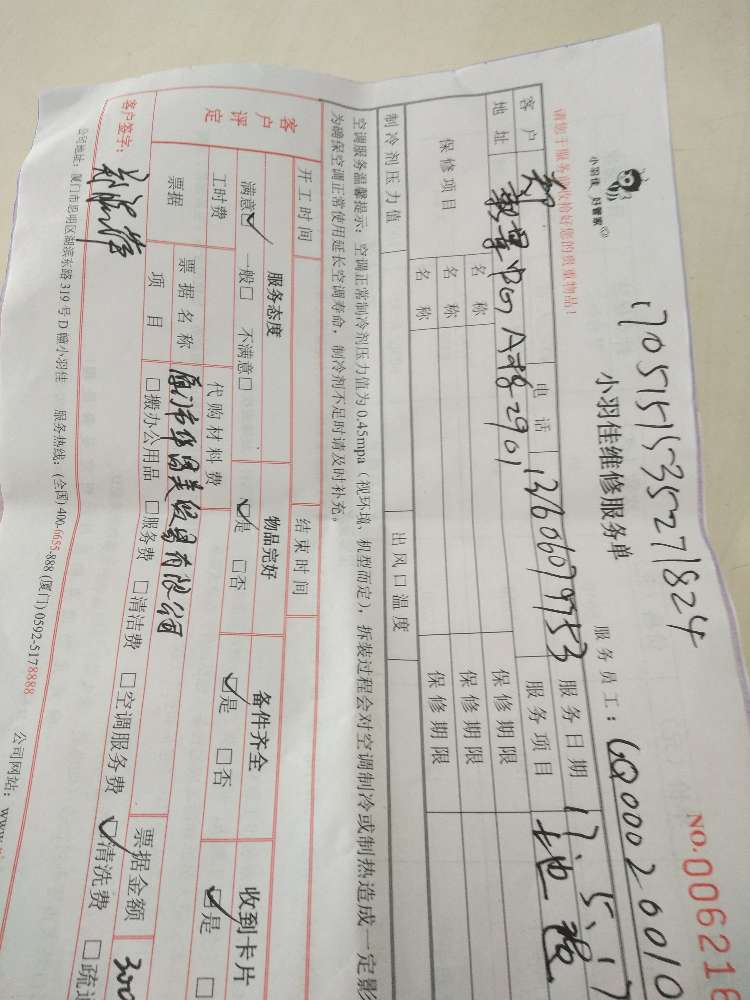 小羽佳 好管家
170515153527 1824
请您于服务前收拾好您的贵重物品!
小羽佳维修服务单
服务员工:
NO.006216
客户 郑 电话 13606079953 服务日期 17.5.17
地址 A栋2901 服务项目 地板
保修项目 名称 保修期限
名称 保修期限
名称 保修期限
制冷剂压力值 出风口温度
空调服务温馨提示:空调正常制冷剂压力值为0.45mpa(视环境,机型而定),拆装过程会对空调制冷或制热造成一定影
为确保空调正常使用延长空调寿命,制冷剂不足时请及时补充。
开工时间 结束时间
客户评定 服务态度 物品完好 备件齐全 收到卡片
满意☑ 一般□ 不满意□ ☑是 □否 ☑是 □否 ☑是 □
工时费 代购材料费
票据 票据名称 厦门市 贸易有限公司 票据金额 300
项目 □搬办公用品 □服务费 □清洁费 □空调服务费 ☑清洗费 □疏
客户签字:
公司地址:厦门市思明区湖滨东路319号D幢小羽佳 服务热线:(全国)400-0655-888 (厦门)0592-5178888 公司网站:www.